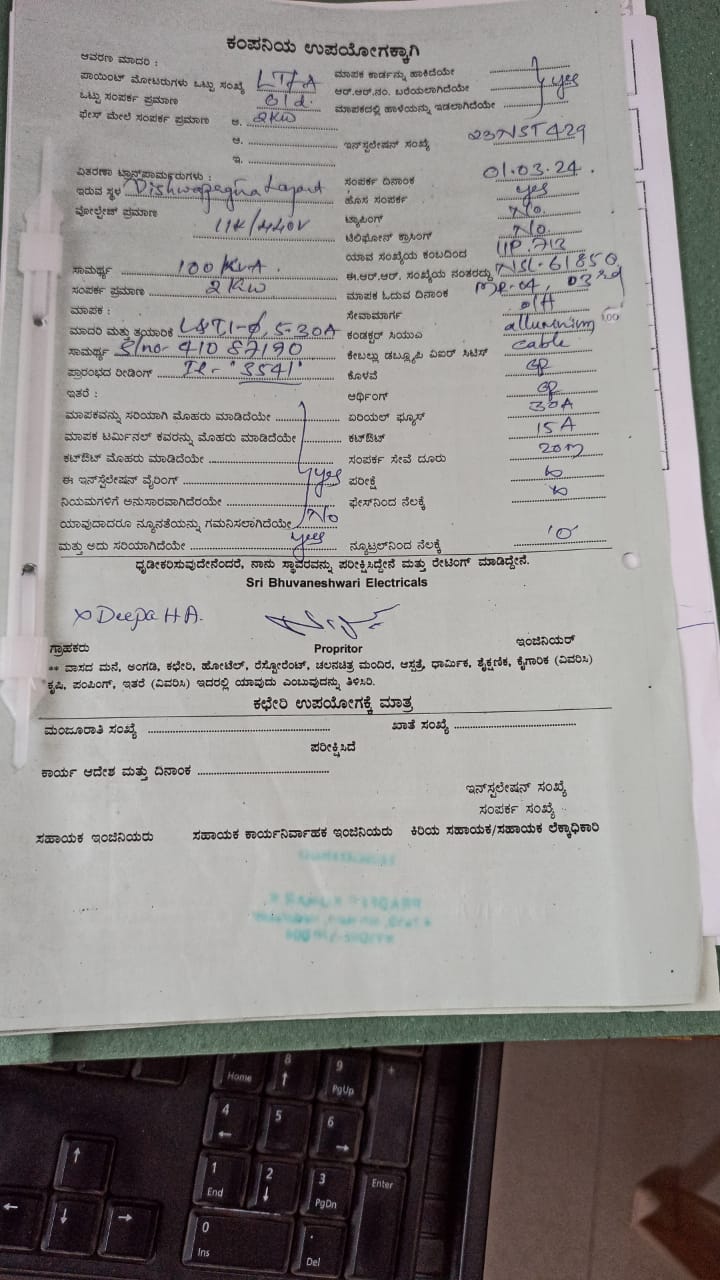 ಕಂಪನಿಯ ಉಪಯೋಗಕ್ಕಾಗಿ
ಆವರಣ ಮಾದರಿ :
ಪಾಯಿಂಟ್ ಮೋಟರುಗಳು ಒಟ್ಟು ಸಂಖ್ಯೆ ಮಾಪಕ ಕಾರ್ಡನ್ನು ಹಾಕಿದೆಯೇ
ಒಟ್ಟು ಸಂಪರ್ಕ ಪ್ರಮಾಣ ಆರ್.ಆರ್.ನಂ. ಬರೆಯಲಾಗಿದೆಯೇ yes
ಫೇಸ್ ಮೇಲೆ ಸಂಪರ್ಕ ಪ್ರಮಾಣ ಅ. 2KW ಮಾಪಕದಲ್ಲಿ ಹಾಳೆಯನ್ನು ಇಡಲಾಗಿದೆಯೇ
ಆ.
ಇ. ಇನ್‌ಸ್ಟಲೇಷನ್ ಸಂಖ್ಯೆ 23NST429
ವಿತರಣಾ ಟ್ರಾನ್ಸ್‌ಫಾರ್ಮರುಗಳು : ಸಂಪರ್ಕ ದಿನಾಂಕ 01.03.24.
ಇರುವ ಸ್ಥಳ Layout ಹೊಸ ಸಂಪರ್ಕ yes
ವೋಲ್ಟೇಜ್ ಪ್ರಮಾಣ 11K/440V ಟ್ಯಾಪಿಂಗ್ No.
ಟೆಲಿಫೋನ್ ಕ್ರಾಸಿಂಗ್ No.
ಯಾವ ಸಂಖ್ಯೆಯ ಕಂಬದಿಂದ
ಸಾಮರ್ಥ್ಯ 100 KVA. ಈ.ಆರ್.ಆರ್. ಸಂಖ್ಯೆಯ ನಂತರದ್ದು NSL-61850
ಸಂಪರ್ಕ ಪ್ರಮಾಣ 2 KW ಮಾಪಕ ಓದುವ ದಿನಾಂಕ MR-04, 03rd
ಮಾಪಕ : ಸೇವಾಮಾರ್ಗ O/H
ಮಾದರಿ ಮತ್ತು ತಯಾರಿಕೆ L&T 1-Ø, 5-30A ಕಂಡಕ್ಟರ್ ಸಿಯುಎ alluminium
ಸಾಮರ್ಥ್ಯ S/no- 410 87190 ಕೇಬಲ್ಲು ಡಬ್ಲ್ಯೂಪಿ ವಿಐಆರ್ ಸಿಟಿಸ್ cable
ಪ್ರಾರಂಭದ ರೀಡಿಂಗ್ IR- "3541" ಕೊಳವೆ GP
ಇತರೆ : ಆರ್ಥಿಂಗ್ GP
ಮಾಪಕವನ್ನು ಸರಿಯಾಗಿ ಮೊಹರು ಮಾಡಿದೆಯೇ ಏರಿಯಲ್ ಫ್ಯೂಸ್ 30A
ಮಾಪಕ ಟರ್ಮಿನಲ್ ಕವರನ್ನು ಮೊಹರು ಮಾಡಿದೆಯೇ ಕಟ್‌ಔಟ್ 15A
ಕಟ್‌ಔಟ್ ಮೊಹರು ಮಾಡಿದೆಯೇ ಸಂಪರ್ಕ ಸೇವೆ ದೂರು 20m
ಈ ಇನ್‌ಸ್ಟಲೇಷನ್ ವೈರಿಂಗ್ yes ಪರೀಕ್ಷೆ
ನಿಯಮಗಳಿಗೆ ಅನುಸಾರವಾಗಿದೆರಯೇ ಫೇಸ್‌ನಿಂದ ನೆಲಕ್ಕೆ
ಯಾವುದಾದರೂ ನ್ಯೂನತೆಯನ್ನು ಗಮನಿಸಲಾಗಿದೆಯೇ No
ಮತ್ತು ಅದು ಸರಿಯಾಗಿದೆಯೇ yes ನ್ಯೂಟ್ರಲ್‌ನಿಂದ ನೆಲಕ್ಕೆ '0'
ಧೃಡೀಕರಿಸುವುದೇನೆಂದರೆ, ನಾನು ಸ್ಥಾವರವನ್ನು ಪರೀಕ್ಷಿಸಿದ್ದೇನೆ ಮತ್ತು ರೇಟಿಂಗ್ ಮಾಡಿದ್ದೇನೆ.
Sri Bhuvaneshwari Electricals
x Deepa H A.
ಗ್ರಾಹಕರು Propritor ಇಂಜಿನಿಯರ್
** ವಾಸದ ಮನೆ, ಅಂಗಡಿ, ಕಛೇರಿ, ಹೋಟೆಲ್, ರೆಸ್ಟೋರೆಂಟ್, ಚಲನಚಿತ್ರ ಮಂದಿರ, ಆಸ್ಪತ್ರೆ, ಧಾರ್ಮಿಕ, ಶೈಕ್ಷಣಿಕ, ಕೈಗಾರಿಕ (ವಿವರಿಸಿ)
ಕೃಷಿ, ಪಂಪಿಂಗ್, ಇತರೆ (ವಿವರಿಸಿ) ಇದರಲ್ಲಿ ಯಾವುದು ಎಂಬುವುದನ್ನು ತಿಳಿಸಿರಿ.
ಕಛೇರಿ ಉಪಯೋಗಕ್ಕೆ ಮಾತ್ರ
ಮಂಜೂರಾತಿ ಸಂಖ್ಯೆ ಖಾತೆ ಸಂಖ್ಯೆ
ಪರೀಕ್ಷಿಸಿದೆ
ಕಾರ್ಯ ಆದೇಶ ಮತ್ತು ದಿನಾಂಕ
ಇನ್‌ಸ್ಟಲೇಷನ್ ಸಂಖ್ಯೆ
ಸಂಪರ್ಕ ಸಂಖ್ಯೆ
ಸಹಾಯಕ ಇಂಜಿನಿಯರು ಸಹಾಯಕ ಕಾರ್ಯನಿರ್ವಾಹಕ ಇಂಜಿನಿಯರು ಕಿರಿಯ ಸಹಾಯಕ/ಸಹಾಯಕ ಲೆಕ್ಕಾಧಿಕಾರಿ
Home 8 9 PgUp +
4 5 6
1 End 2 3 PgDn Enter
0 Ins . Del